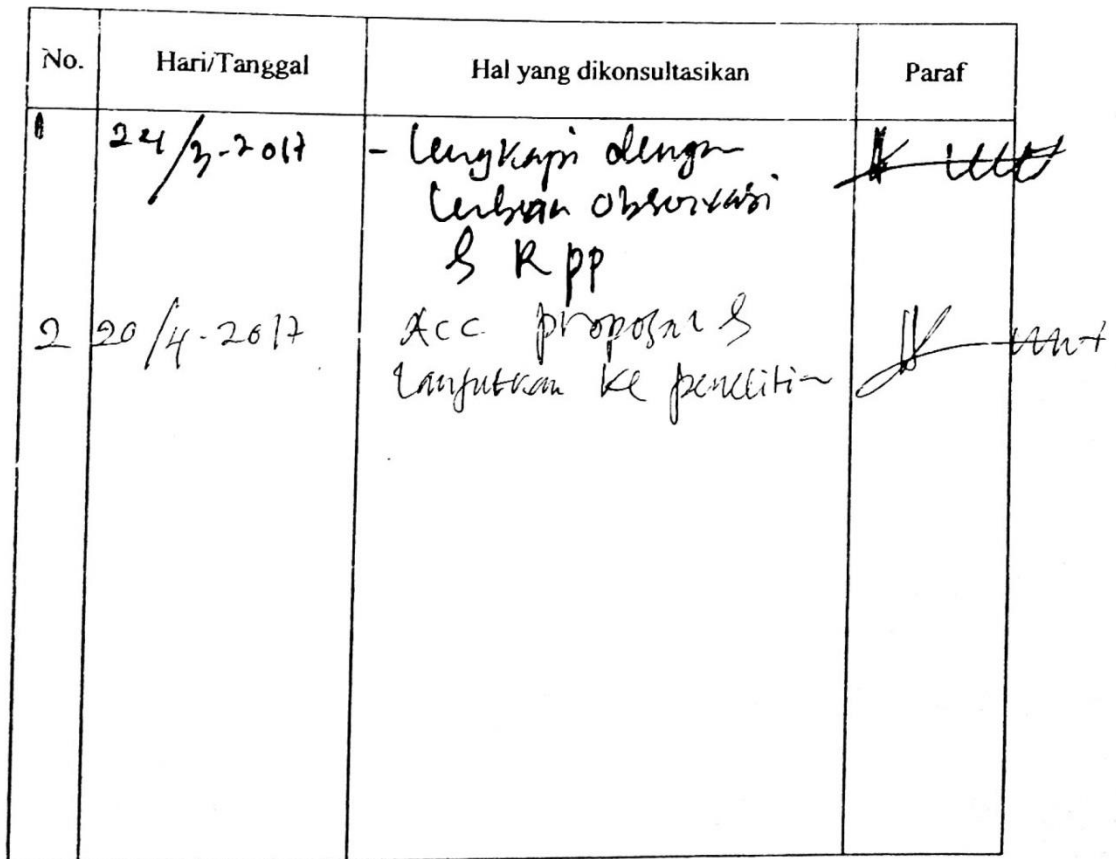 No. Hari/Tanggal Hal yang dikonsultasikan Paraf
1 24/3-2017 - Lengkapi dengan
Lembaran observasi
& Rpp
2 20/4-2017 Acc proposal &
Lanjutkan ke penelitian